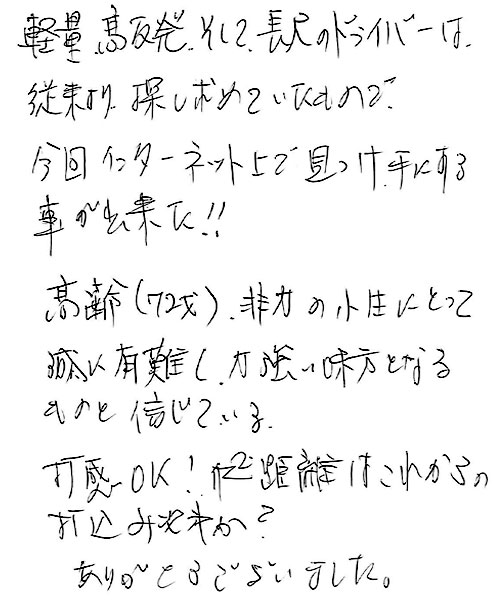 軽量、高反発、そして、長尺のドライバーは、
従来より、探し求めていたもので、
今回インターネット上で見つけ、手にする
事が出来た!!
高齢(72才)、非力の小生にとって
誠に有難く、力強い味方となる
ものと信じている。
打感OK! 飛距離はこれからの
打込み次第か?
ありがとうございました。